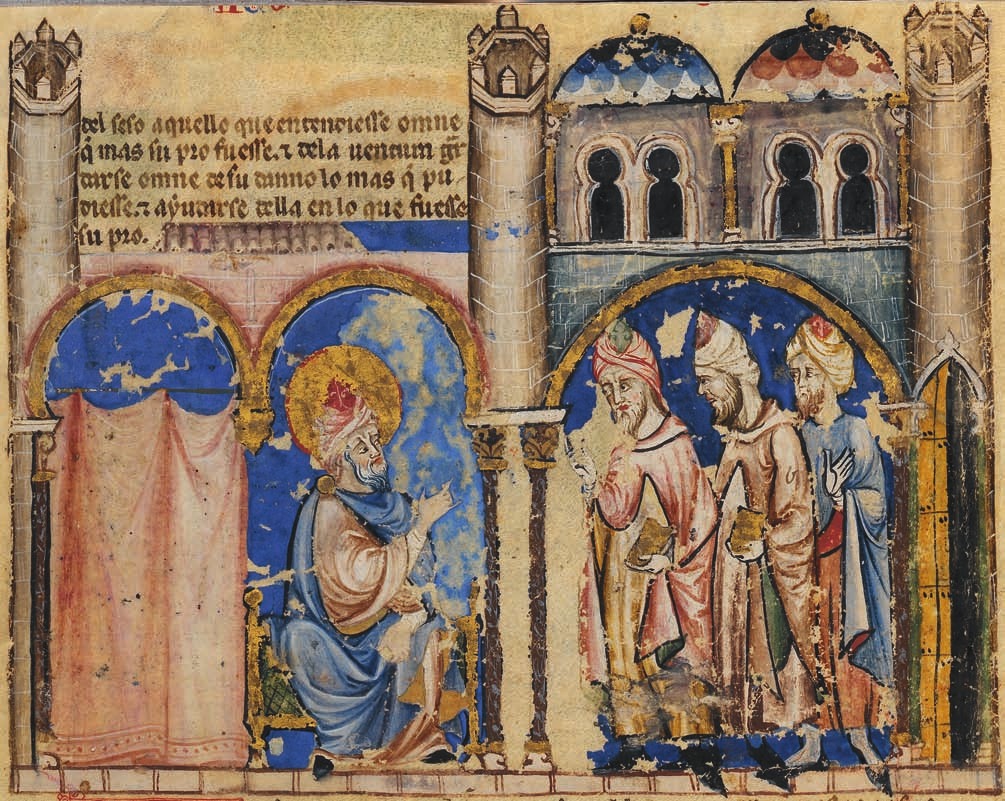 del seso aquello que entendiesse omne
q̄ mas su pro fuesse. ⁊ dela uentura
darse omne de su danno lo mas q̄ pu
diesse. ⁊ ayudarse della en lo que fuesse
su pro.